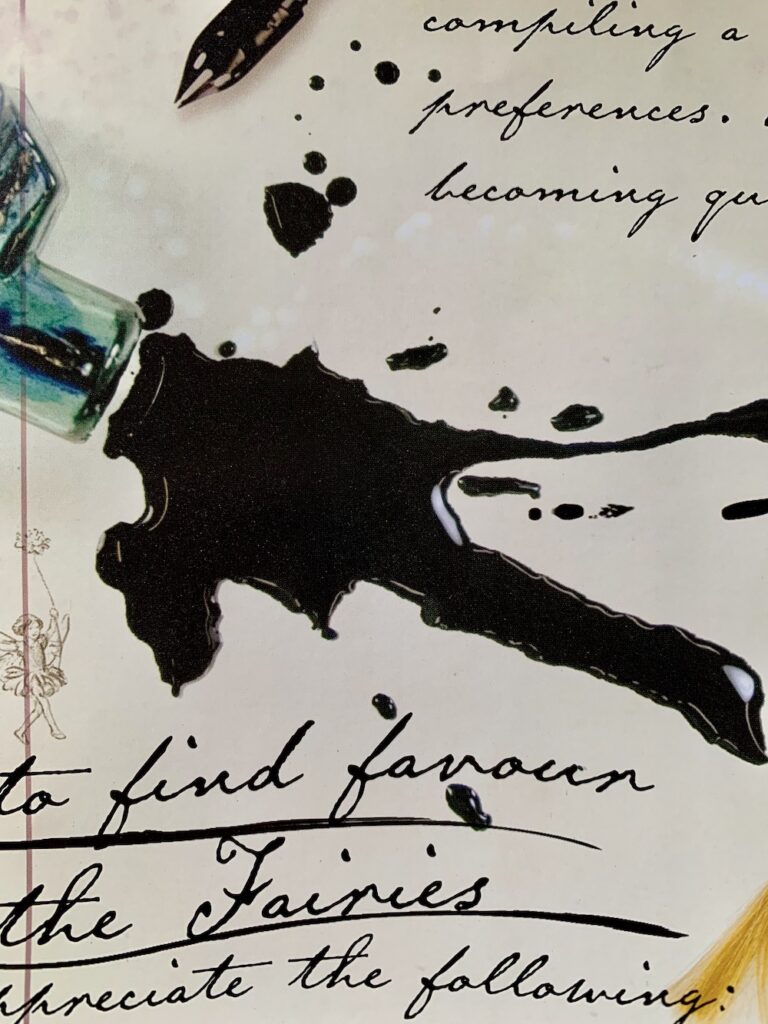 compiling a
preferences.
becoming qu
to find favour
the Fairies
ppreciate the following: